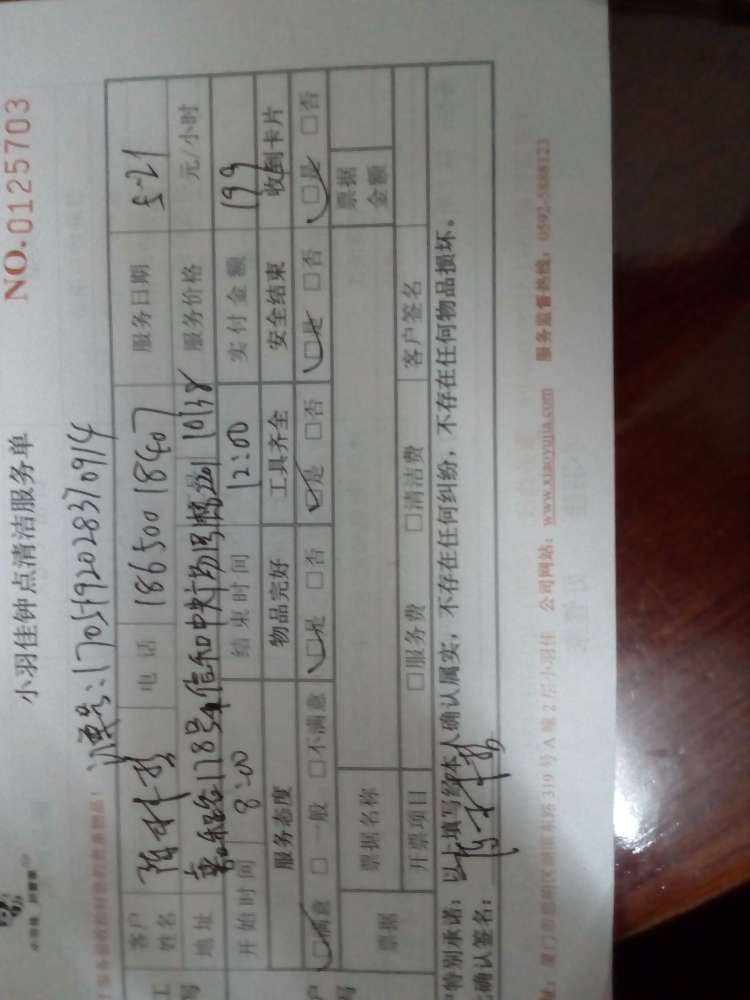 小羽佳钟点清洁服务单
NO.0125703
订单号:1705192028370914
客户姓名 电话 18650018407 服务日期 5-21
地址 服务价格 元/小时
开始时间 8:00 结束时间 12:00 实付金额 199
服务态度 物品完好 工具齐全 安全结束 收到卡片
□满意 □一般 □不满意 □是 □否 □是 □否 □是 □否 □是 □否
票据 票据名称 票据金额
开票项目 □服务费 □清洁费 客户签名
特别承诺:以上填写经本人确认属实,不存在任何纠纷,不存在任何物品损坏。
确认签名:
319号A幢2层小羽佳 公司网站:www.xiaoyujia.com 服务监督热线:0592-5888123